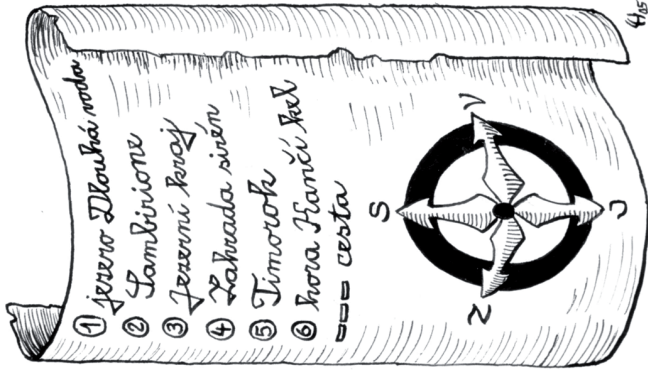 ① jezero Dlouhá voda
② Sambirione
③ Jezerní kraj
④ Zahrada sirén
⑤ Timorok
⑥ hora Kančí kel
cesta
S
V
Z
J